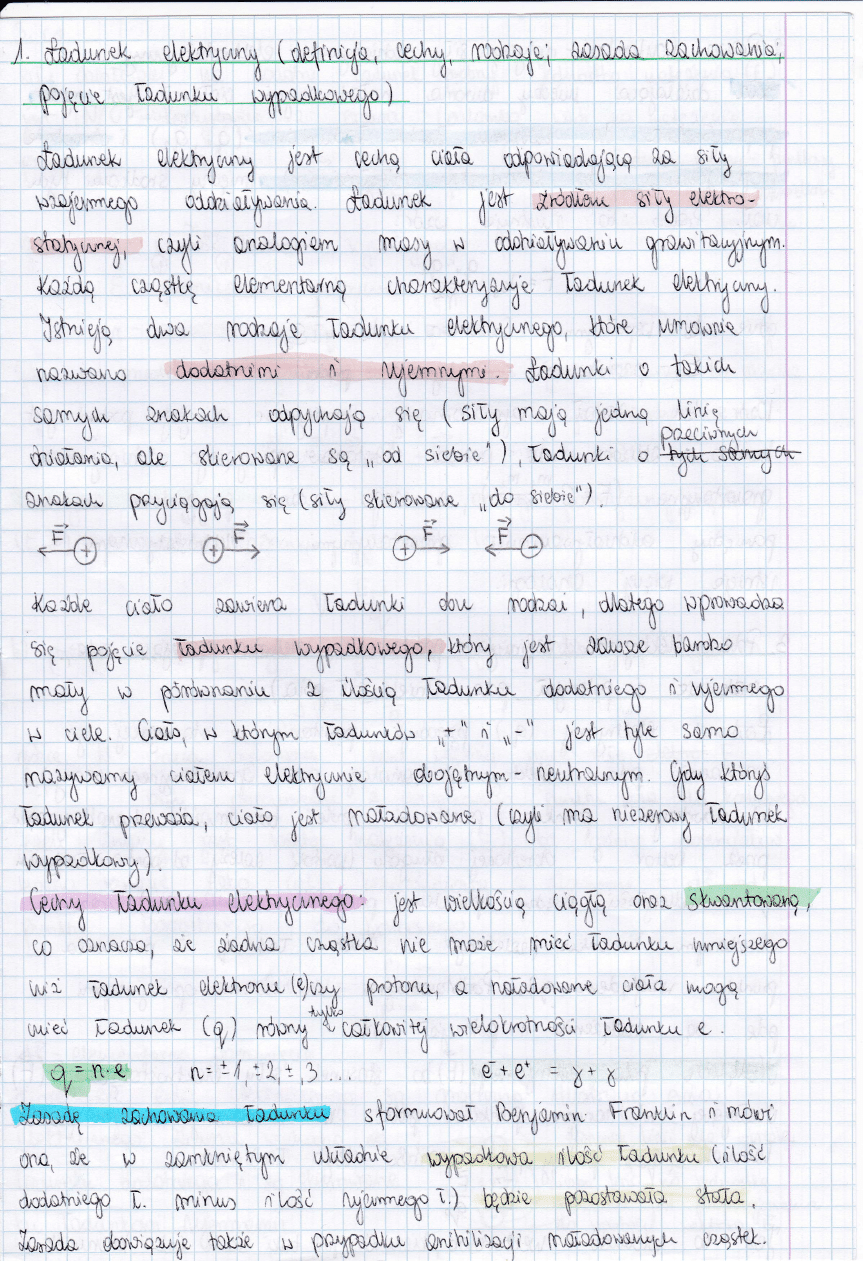 1. Ładunek elektryczny (definicja, cechy, rodzaje; zasada zachowania;
pojęcie ładunku wypadkowego)
Ładunek elektryczny jest cechą ciała odpowiadającą za siły
wzajemnego oddziaływania. Ładunek jest źródłem siły elektro-
statycznej, czyli analogiem masy w oddziaływaniu grawitacyjnym.
Każdą cząstkę elementarną charakteryzuje ładunek elektryczny.
Istnieją dwa rodzaje ładunku elektrycznego, które umownie
nazwano dodatnimi i ujemnymi. Ładunki o takich
samych znakach odpychają się (siły mają jedną linię
działania, ale skierowane są „od siebie"), ładunki o przeciwnych tych samych
znakach przyciągają się (siły skierowane „do siebie").
F + + F + F F −
Każde ciało zawiera ładunki obu rodzai, dlatego wprowadza
się pojęcie ładunku wypadkowego, który jest zawsze bardzo
mały w porównaniu z ilością ładunku dodatniego i ujemnego
w ciele. Ciało, w którym ładunków „+" i „-" jest tyle samo
nazywamy ciałem elektrycznie obojętnym - neutralnym. Gdy któryś
ładunek przeważa, ciało jest naładowane (czyli ma niezerowy ładunek
wypadkowy).
Cechy ładunku elektrycznego: jest wielkością ciągłą oraz skwantowaną,
co oznacza, że żadna cząstka nie może mieć ładunku mniejszego
niż ładunek elektronu (e) czy protonu, a naładowane ciała mogą
mieć ładunek (q) równy tylko całkowitej wielokrotności ładunku e.
q = n·e n = ±1, ±2, ±, 3 ... e⁻ + e⁺ = γ + γ
Zasadę zachowania ładunku sformułował Benjamin Franklin i mówi
ona, że w zamkniętym układzie wypadkowa ilość ładunku (ilość
dodatniego ł. minus ilość ujemnego ł.) będzie pozostawała stała.
Zasada obowiązuje także w przypadku anihilizacji naładowanych cząstek.